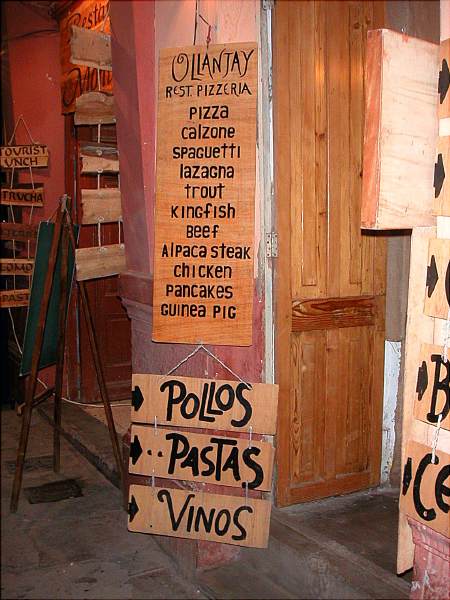 OLLANTAY
REST. PIZZERIA
PIZZA
CALZONE
SPAGUETTI
LAZAGNA
TROUT
KINGFISH
BEEF
ALPACA STEAK
CHICKEN
PANCAKES
GUINEA PIG
POLLOS
PASTAS
VINOS
TOURIST
UNCH
TRUCHA
LOMO
PASTA
B
CE